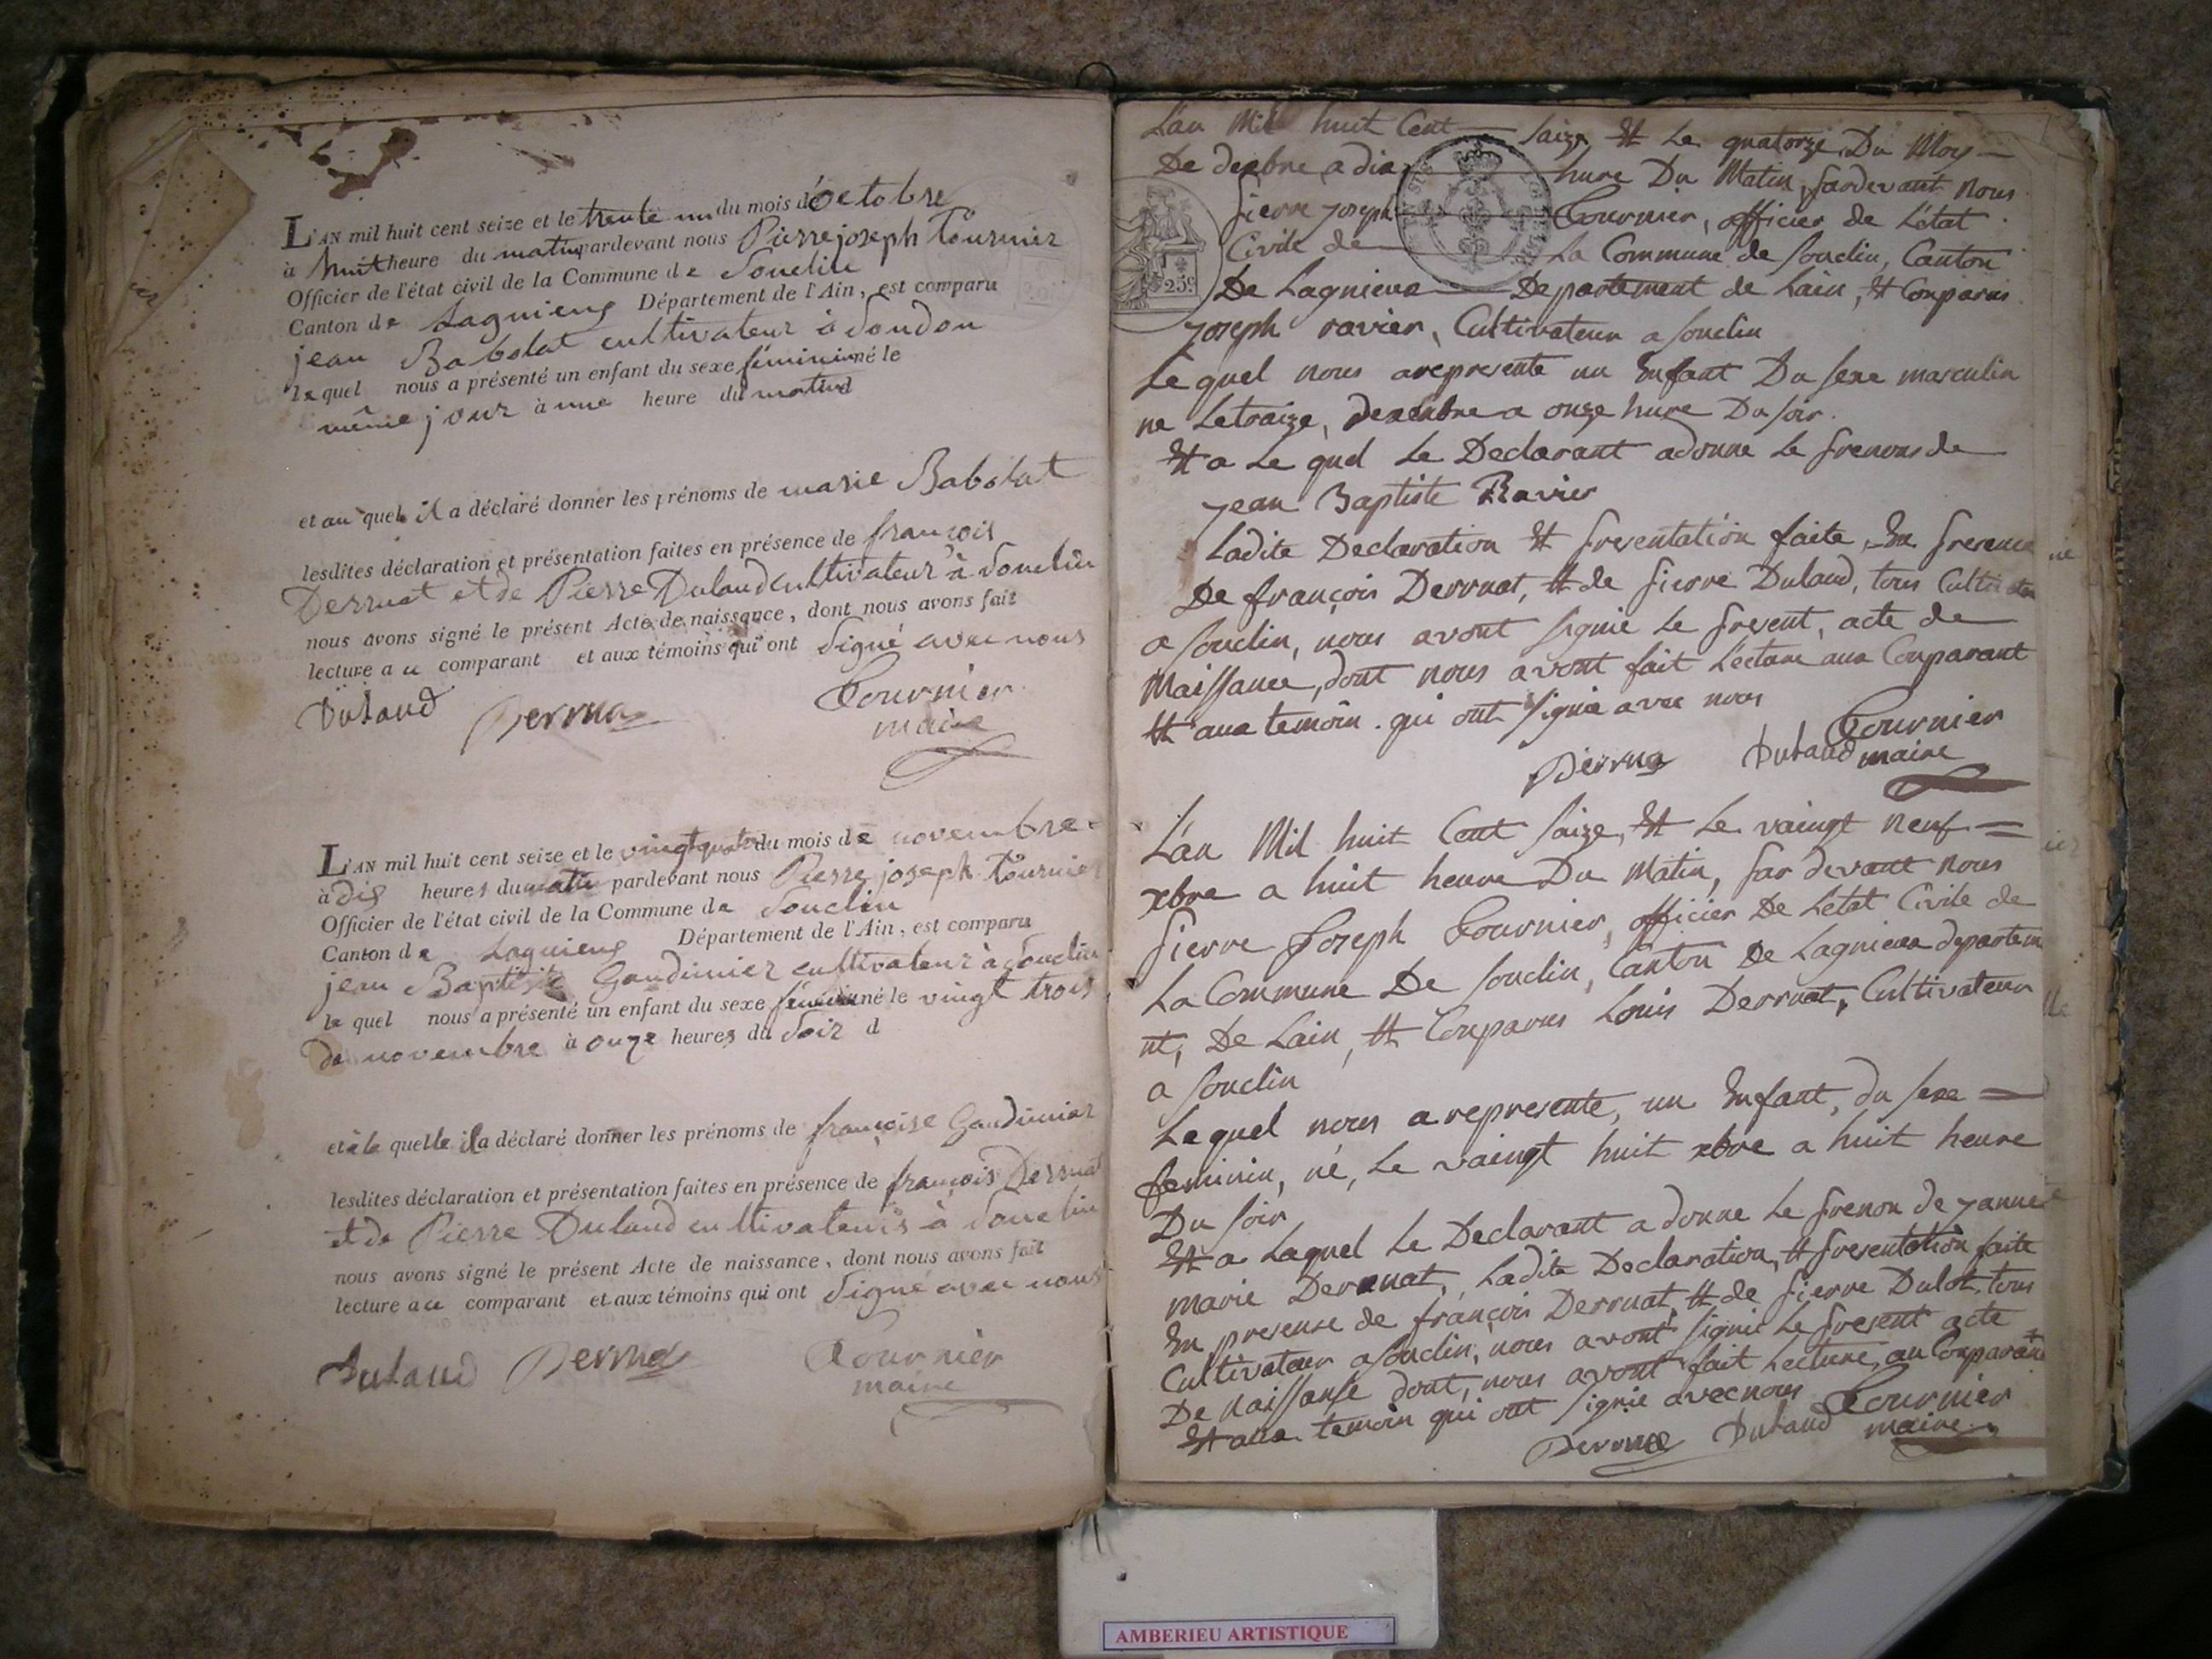 L'AN mil huit cent seize et le trente un du mois d'octobre
à huit heure du matin pardevant nous Pierre joseph Tournier
Officier de l'état civil de la Commune de Souclin
Canton de Lagnieux Département de l'Ain, est comparu
jean Babolat cultivateur à Soudon
lequel nous a présenté un enfant du sexe féminin né le
même jour à une heure du matin
et au quel il a déclaré donner les prénoms de marie Babolat
lesdites déclaration et présentation faites en présence de françois
Derruat et de Pierre Dulaud cultivateur à Souclin
nous avons signé le présent Acte de naissance, dont nous avons fait
lecture au comparant et aux témoins qui ont signé avec nous
Dulaud Derrua Tournier
maire
L'AN mil huit cent seize et le vingt quatre du mois de novembre
à dix heures du matin pardevant nous Pierre joseph Tournier
Officier de l'état civil de la Commune de Souclin
Canton de Lagnieux Département de l'Ain, est comparu
jean Baptiste Gaudinier cultivateur à Souclin
le quel nous a présenté un enfant du sexe féminin né le vingt trois
de novembre à onze heures du soir d
et à la quelle il a déclaré donner les prénoms de françoise Gaudinier
lesdites déclaration et présentation faites en présence de françois Derruat
et de Pierre Dulaud cultivateurs à Souclin
nous avons signé le présent Acte de naissance, dont nous avons fait
lecture au comparant et aux témoins qui ont signé avec nous
Dulaud Derrua Tournier
maire
L'an Mil huit Cent saize Et Le quatorze Du Moy
De dexbre a dix hure Du Matin, pardevant nous
pierre joseph Tournier, officier de L'état
Civile de La Commune de Souclin, Canton
De Lagnieux Departement de Lain, Et Comparus
joseph ravier, Cultivateur a Souclin
Le quel nous a represente un Enfant Du sexe masculin
ne Letraize, dexembre a onze hure Du soir.
Et a Le quel Le Declarant a donne Le prenons de
jean Baptiste Ravier
Ladite Declaration Et presentation faite, En presence
De françois Derruat, Et de pierre Dulaud, tous
a Souclin, nous avont signie Le present, acte de
Naissance, dont nous avont fait Lecture aux Comparant
Et aux temoin. qui ont signie avec nous
Tournier
Derrua Dulaud maire
L'an Mil huit Cent saize, Et Le vaingt neuf =
xbre a huit heure Du Matin, par devant nous
pierre Joseph Tournier, officier De Letat Civile de
La Commune De Souclin, Canton De Lagnieux departem
nt, De Lain, Et Comparus Louis Derruat, Cultivateur
a Souclin
Lequel nous a represente, un Enfant, du sexe =
feminin, né, Le vaingt huit xbre a huit heure
Du soir
Et a Laquel Le Declarant a donne Le prenon de janne
marie Derruat, Ladite Declaration, Et presentation faite
En presense de françois Derruat, Et de pierre Dulot, tous
Cultivateur a Souclin, nous avont signie Le present acte
De Naissanse dont, nous avont fait Lecture, au Comparant
Et aux temoin qui ont signie avec nous Tournier
Derrua Dulaud maire
25c
AMBERIEU ARTISTIQUE